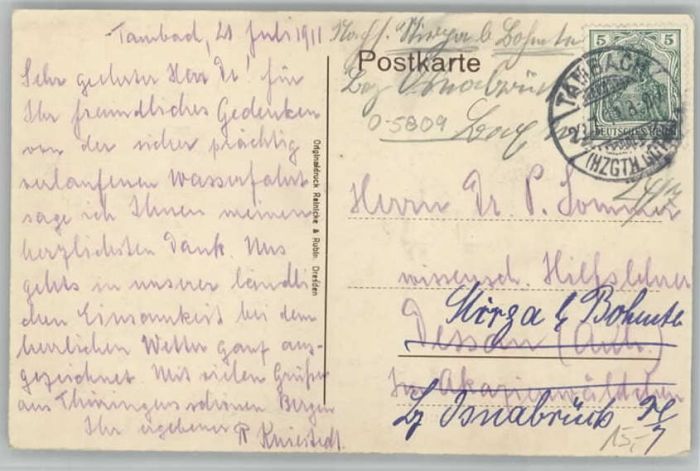 Tambach, 21 Juli 1911
Sehr geehrter Herr Dr! für
Ihr freundliches Gedenken
von der sicher prächtig
verlaufenen Wasserfahrt
sage ich Ihnen meinen
herzlichsten Dank. Uns
gehts in unserer ländli-
chen Einsamkeit bei dem
herrlichen Wetter ganz aus-
gezeichnet. Mit vielen Grüßen
aus Thüringens schönen Bergen
Ihr ergebener R Kniestedt.
Originaldruck Reinicke & Rubin, Dresden
Postkarte
Bohmte
Bez Osnabrück
0-5809
5
DEUTSCHES REICH
TAMBACH
(HZGTH. GOTHA)
Herrn Dr. P. Sommer
wissensch. Hilfslehrer
Hirza b Bohmte
Dessau (Anh.)
Im Akazienwäldchen
Bz Osnabrück
15,-